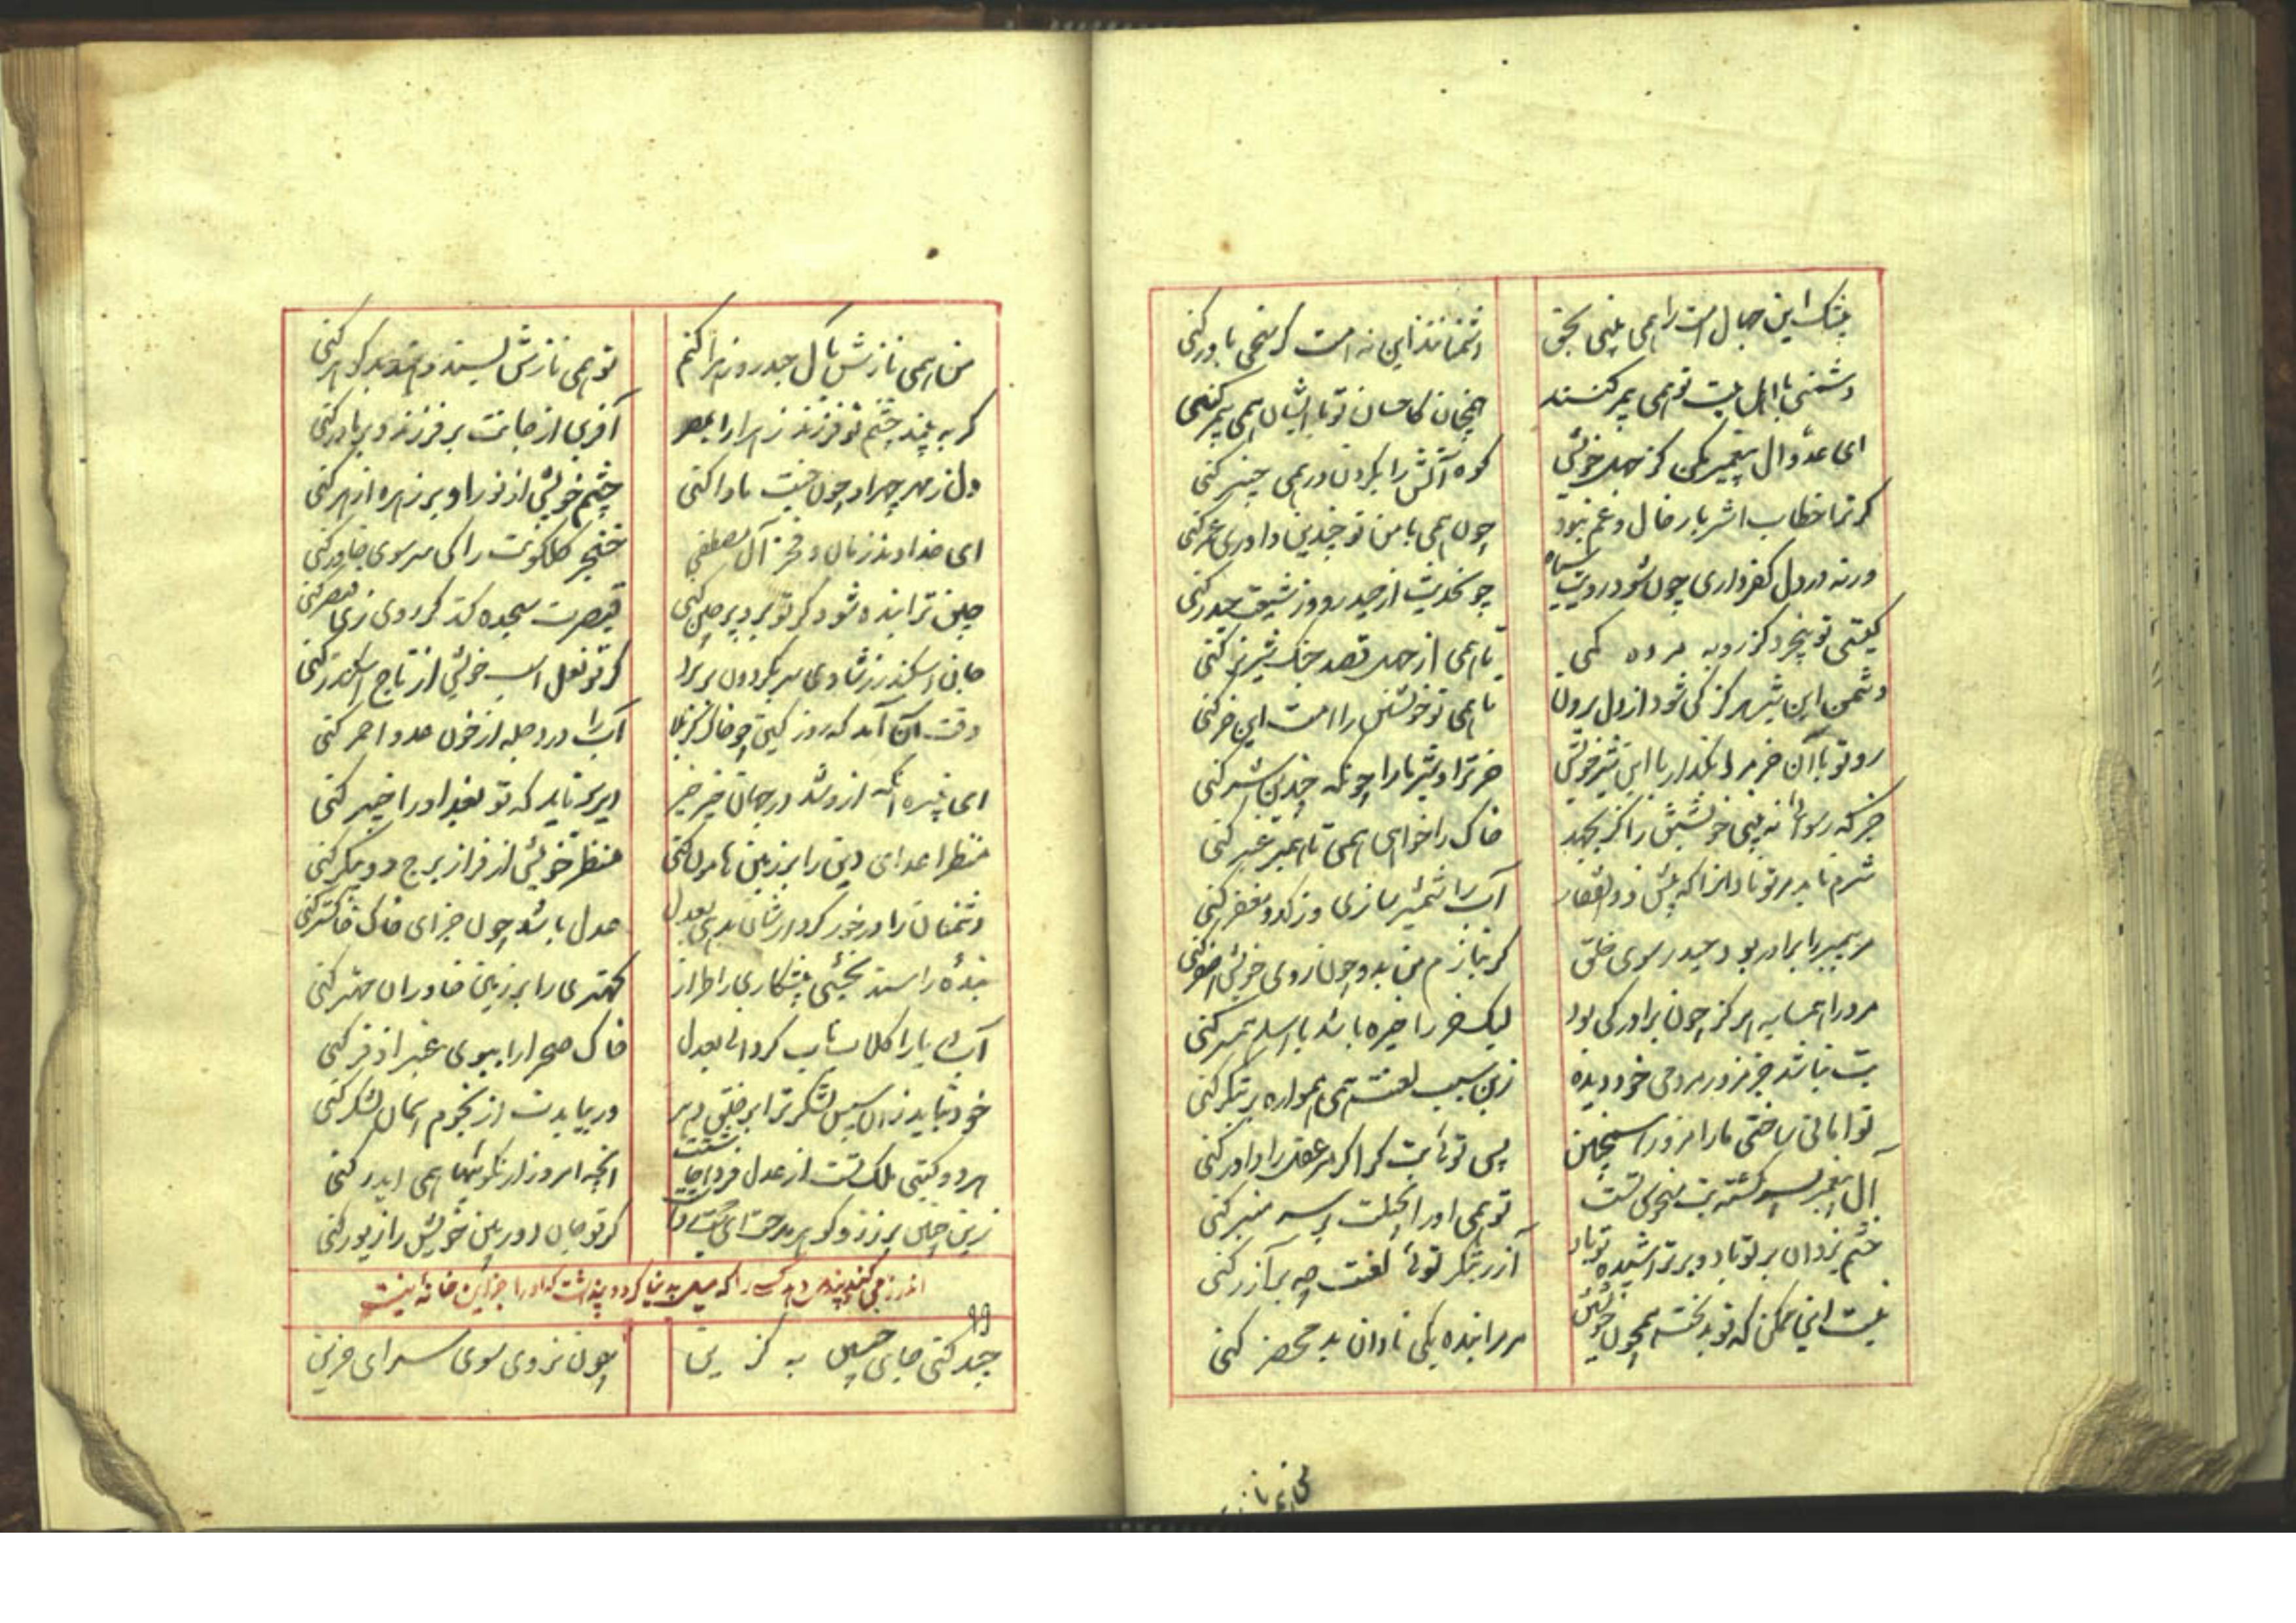 بیشک این حبال امت را همی بینی بحق
دشمنانند این نه امت گر سخن باور کنی
دشمنی با اهل بیت تو همی پیمبر کنند
همچنان کاحسان تو با ایشان همی پیمبر کنی
ای عدو آل پیغمبر مکن کز جهل خویش
کوه آتش را بگردن در همی چنبر کنی
گر ترا خطاب اشر یار خال و عم نبود
چون همی با من تو چندین داوری عمر کنی
ورنه در دل کفر داری چون شود رویت سیاه
چو حدیث از حیدر و از شیعت حیدر کنی
گیتی تو بیخرد کز روبه مرده کمی
تا همی از جهل قصد جنگ شیر نر کنی
دشمن این شیر هرگز کی شود از دل برون
تا همی تو خویشتن را امت این خر کنی
رو تو با آن خر مرا بگذار با این شیر خویش
خر ترا و شیر ما را چونکه چندین شر کنی
جز که رسوائی نه بینی خویشتن را گر بجهد
خاک را خواهی همی تا همبر عنبر کنی
شرم ناید مر تو نادانرا که پیش ذوالفقار
آب را شمشیر سازی وز کدو مغفر کنی
مر پیمبر را برادر بود حیدر سوی خلق
گر بنازم من بدو چون روی خویش اصفر کنی
مر درا همسایه هرگز چون برادر کی بود
لیک خر را خیره باشد با اسلم همبر کنی
بت نباشد جز مزور مردمی خود دیده
زین سبب لعنت همی همواره بر بتگر کنی
تو امامی ساختی ما را مزور اینچنین
پس تو را بت گر اگر مر عقل را داور کنی
آل پیغمبر بسر گشته بت منحوس تست
تو همی او را بحیلت بر سر منبر کنی
خشم یزدان بر تو باد و بر تراشیده تو باد
آزر بتگر توئی لعنت چه بر آزر کنی
نیست این ممکن که تو بدبخت همچون خویش
مر مرا بنده یکی نادان بد محضر کنی
من همی نازش بآل حیدر و زهرا کنم
تو همی نازش بسند و هند بد گوهر کنی
گر به بیند چشم تو فرزند زهرا را بمصر
آفرین از جانت بر فرزند و بر مادر کنی
دل ز مهر چهر او چون جنت ماوا کنی
چشم خویش از نور او بر زهره ازهر کنی
ای خداوند زمان و فخر آل مصطفی
خنجر گلگونت را کی سر سوی خاور کنی
چین ترا بنده شود گر تو برو پرچین کنی
قیصرت سجده کند گر روی زی قیصر کنی
جان اسکندر ز شادی سر بگردون بر برد
گر تو نعل اسب خویش از تاج اسکندر کنی
وقت آن آمد که روز کین چو خاک کربلا
آب را در دجله از خون عدو احمر کنی
ای نبیره آنکه ازو شد در جهان خیبر خبر
دیر برناید که تو بغداد را خیبر کنی
منظر اعدای دین را بر زمین هامون کنی
منظر خویش از فراز برج دو پیکر کنی
دشمنان را در خور کردارشان بدهی بعدل
عدل باشد چون جزای خاک خاکستر کنی
بنده را سند بخشی پیشکاری را طراز
کهتری را بر زمین خاوران مهتر کنی
آب دریا را گلاب ناب گردانی بعدل
خاک صحرا را ببوی عنبر اذفر کنی
خود نباید زان سپس لشکر ترا بر خلق دهر
ور ببایدت از نجوم آسمان لشکر کنی
هر دو گیتی ملک تست از عدل فردا جنت
آنچه امروز از نکوئیها همی ایدر کنی
زین چنین پر زر و گوهر مدحت ای حجت رواست
گر تو جان دور بین خویش را زیور کنی
اندرز می کند و پند می دهد کسی را که میل به دنیا کرد و پنداشت که او را جز این خانه نیست
۹۹
چند کنی جای چنین به گزین
چون نروی سوی سرای حزین
من همی نازش